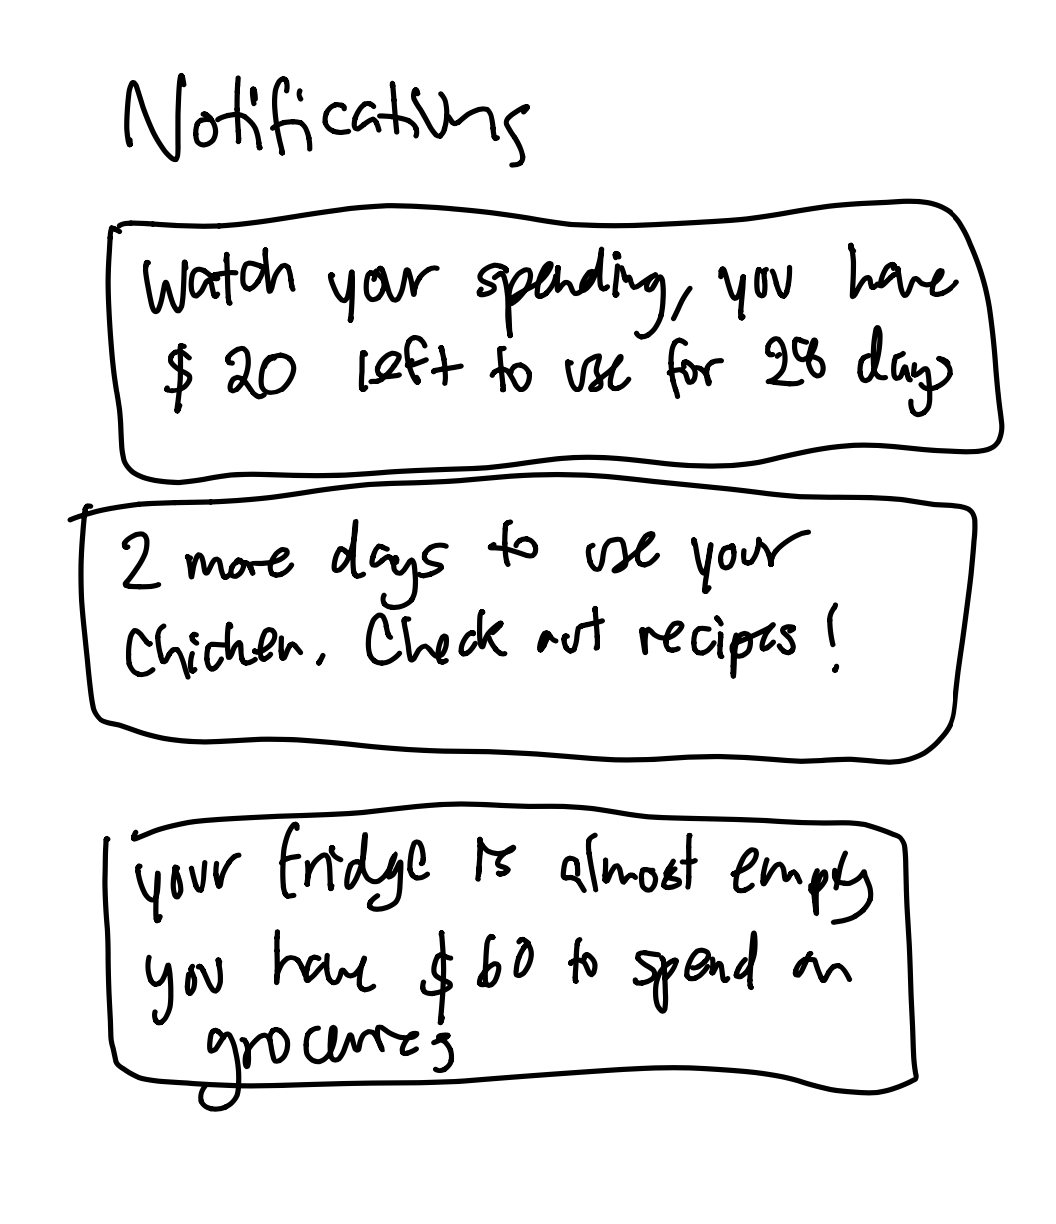 Notifications
Watch your spending, you have
$20 left to use for 28 days
2 more days to use your
chicken. Check out recipes!
your fridge is almost empty
you have $60 to spend on
groceries